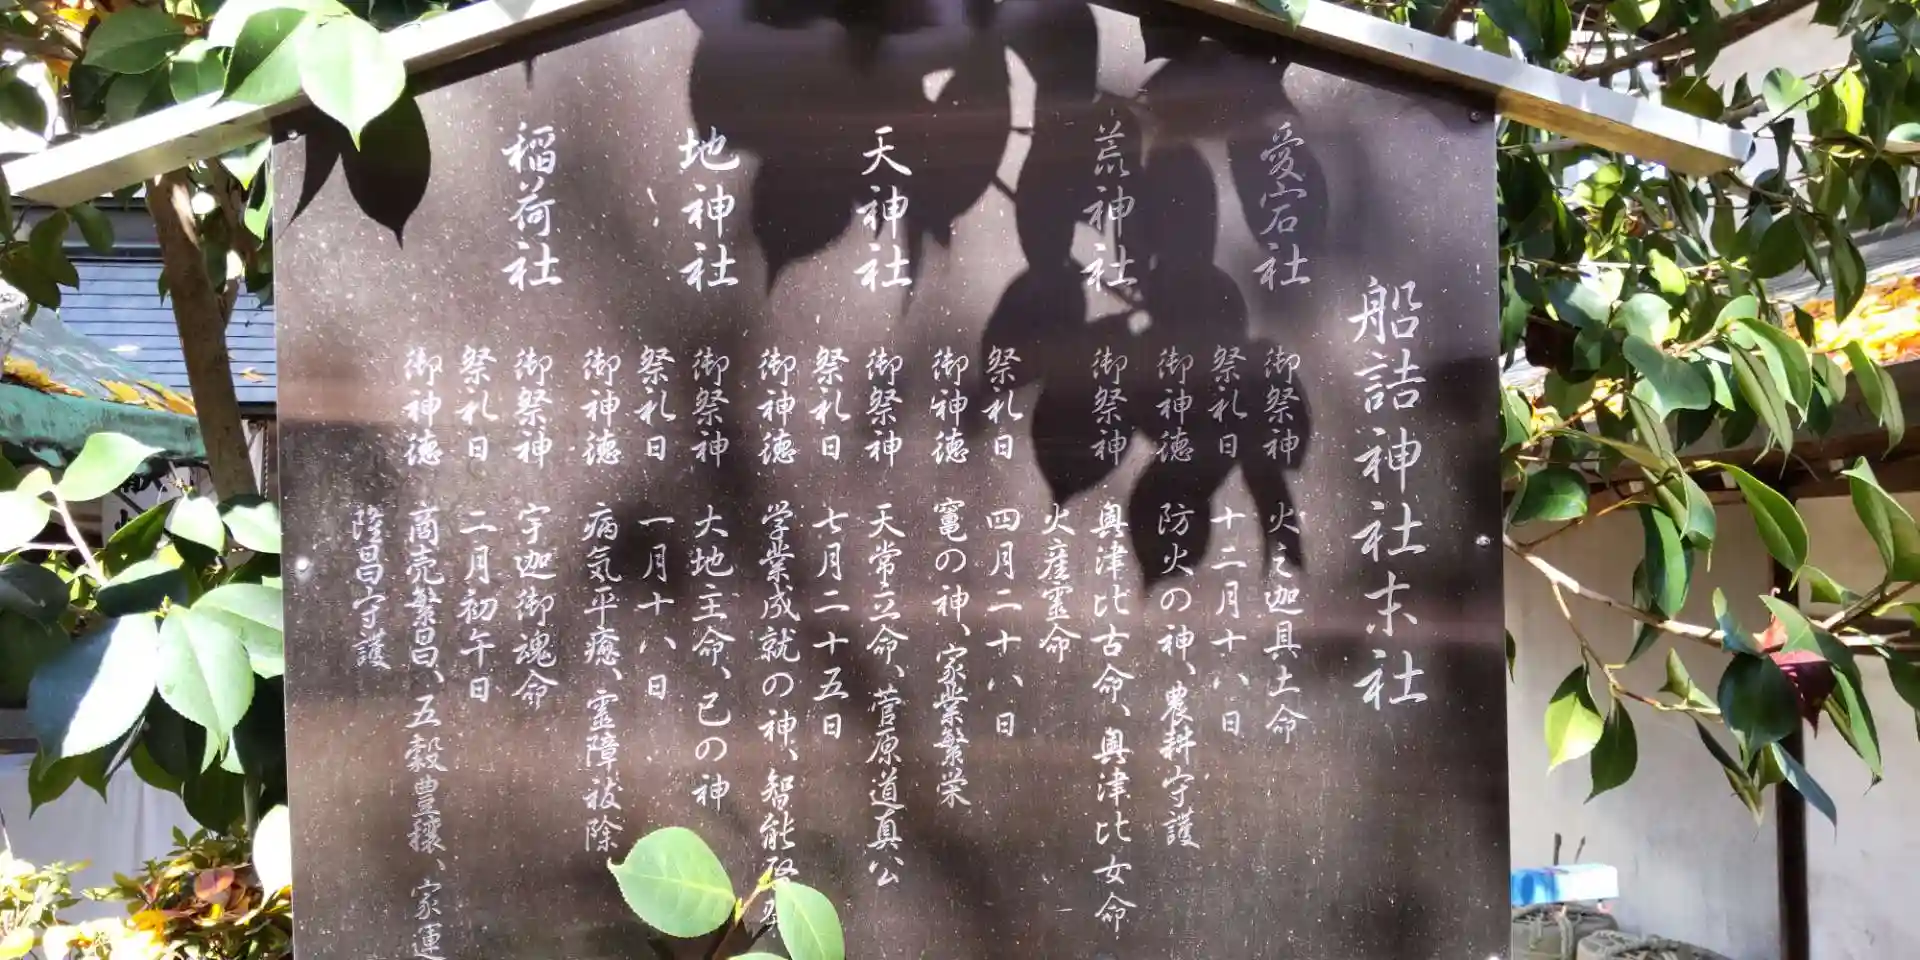 船詰神社末社
愛宕社
御祭神 火之迦具土命
祭礼日 十二月十八日
御神徳 防火の神、農耕守護
荒神社
御祭神 奥津比古命、奥津比女命
火産霊命
祭礼日 四月二十八日
御神徳 竃の神、家業繁栄
天神社
御祭神 天常立命、菅原道真公
祭礼日 七月二十五日
御神徳 学業成就の神、智能
地神社
御祭神 大地主命、巳の神
祭礼日 一月十八日
御神徳 病気平癒、霊障祓除
稲荷社
御祭神 宇迦御魂命
祭礼日 二月初午日
御神徳 商売繁昌、五穀豊穣、家運
隆昌守護